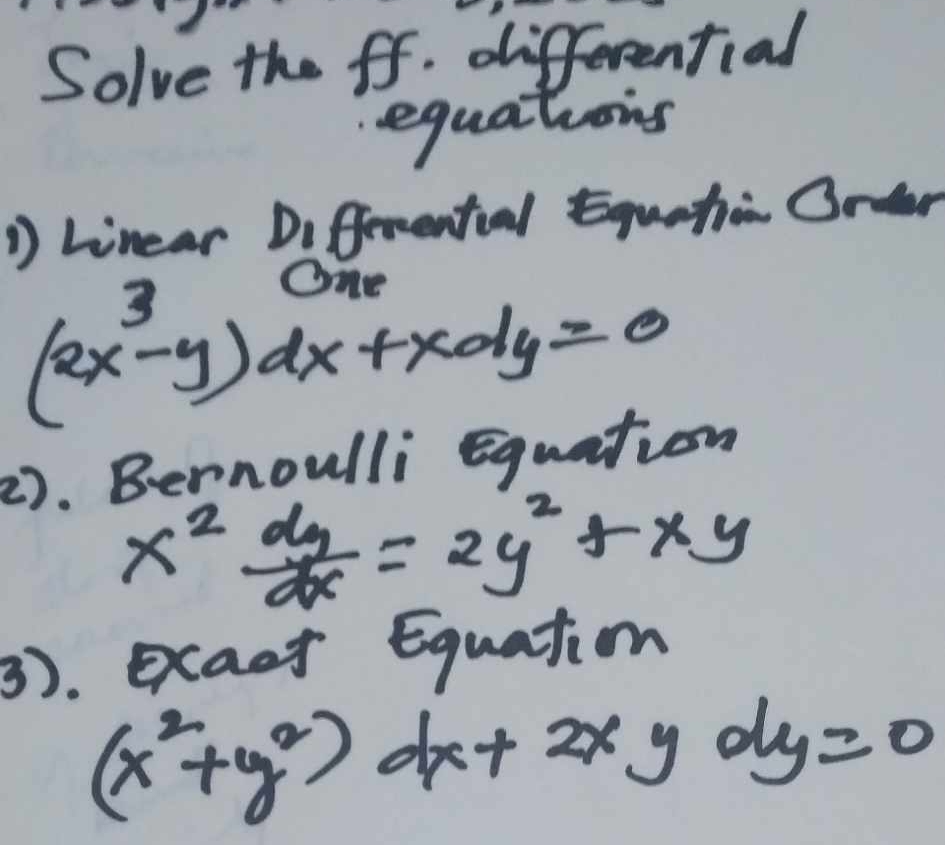 Solve the ff. differential
equations
1) Linear Differential Equation Order
One
(2x³-y)dx+xdy=0
2). Bernoulli Equation
x² dy/dx = 2y² + xy
3). Exact Equation
(x²+y²) dx + 2xy dy=0